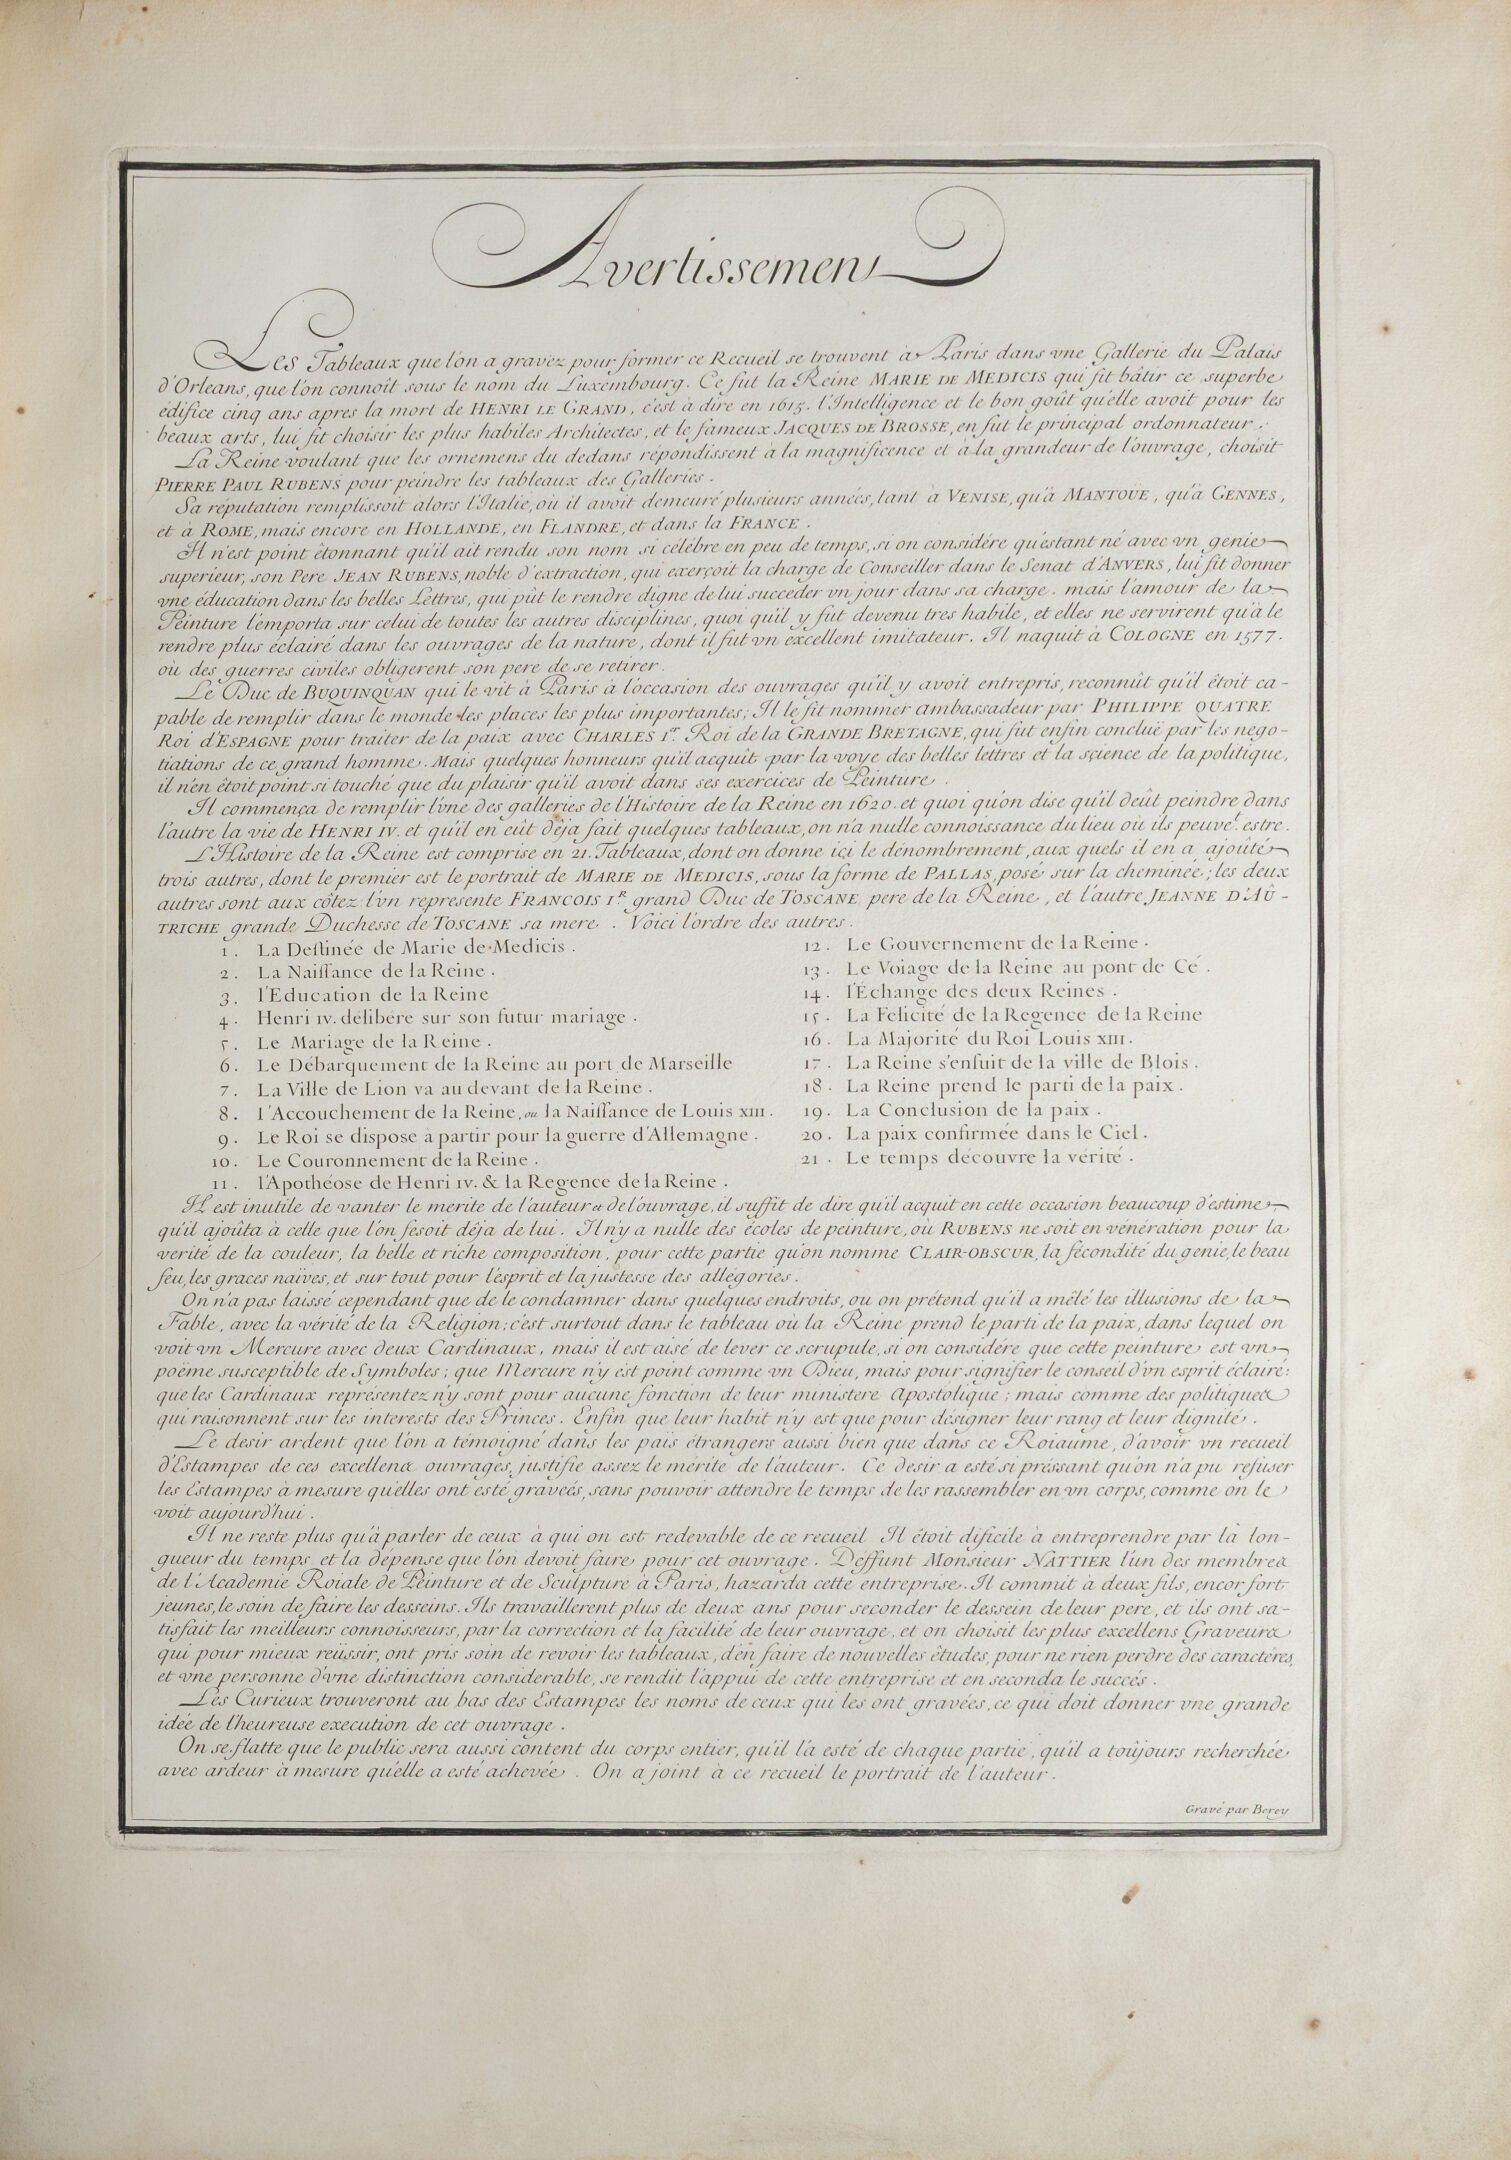 Avertissement
Les Tableaux que l'on a gravez pour former ce Recueil se trouvent à Paris dans vne Gallerie du Palais
d'Orleans, que l'on connoît sous le nom du Luxembourg. Ce fut la Reine MARIE DE MEDICIS qui fit bâtir ce superbe
édifice cinq ans apres la mort de HENRI LE GRAND, c'est à dire en 1615. l'Intelligence et le bon goût qu'elle avoit pour les
beaux arts, lui fit choisir les plus habiles Architectes, et le fameux JACQUES DE BROSSE, en fut le principal ordonnateur.
La Reine voulant que les ornemens du dedans répondissent à la magnificence et à la grandeur de l'ouvrage, choisit
PIERRE PAUL RUBENS pour peindre les tableaux des Galleries.
Sa réputation remplissoit alors l'Italie, où il avoit demeuré plusieurs années, tant à VENISE, qu'à MANTOUE, qu'à GENNES,
et à ROME, mais encore en HOLLANDE, en FLANDRE, et dans la FRANCE.
Il n'est point étonnant qu'il ait rendu son nom si célébre en peu de temps, si on considére qu'estant né avec vn genie
superieur, son Pere JEAN RUBENS, noble d'extraction, qui exerçoit la charge de Conseiller dans le Senat d'ANVERS, lui fit donner
vne éducation dans les belles Lettres, qui pût le rendre digne de lui succeder vn jour dans sa charge. mais l'amour de la
Peinture l'emporta sur celui de toutes les autres disciplines, quoi qu'il y fut devenu tres habile, et elles ne servirent qu'à le
rendre plus éclairé dans les ouvrages de la nature, dont il fut vn excellent imitateur. Il naquit à COLOGNE en 1577.
où des guerres civiles obligerent son pere de se retirer.
Le Duc de BUQUINQUAN qui le vit à Paris à l'occasion des ouvrages qu'il y avoit entrepris, reconnût qu'il étoit ca-
pable de remplir dans le monde les places les plus importantes; Il le fit nommer ambassadeur par PHILIPPE QUATRE
Roi d'ESPAGNE pour traiter de la paix avec CHARLES Ier. Roi de la GRANDE BRETAGNE, qui fut enfin concluë par les nego-
tiations de ce grand homme. Mais quelques honneurs qu'il acquît par la voye des belles lettres et la sçience de la politique,
il n'en étoit point si touché que du plaisir qu'il avoit dans ses exercices de Peinture.
Il commença de remplir l'vne des galleries de l'Histoire de la Reine en 1620. et quoi qu'on dise qu'il deût peindre dans
l'autre la vie de HENRI IV. et qu'il en eût déja fait quelques tableaux, on n'a nulle connoissance du lieu où ils peuvet. estre.
L'Histoire de la Reine est comprise en 21. Tableaux, dont on donne içi le dénombrement, aux quels il en a ajoûté
trois autres, dont le premier est le portrait de MARIE DE MEDICIS, sous la forme de PALLAS, posé sur la cheminée; les deux
autres sont aux côtez: l'vn represente FRANCOIS Ir. grand Duc de TOSCANE, pere de la Reine, et l'autre JEANNE D'AÛ-
TRICHE grande Duchesse de TOSCANE sa mere. Voici l'ordre des autres.
1. La Destinée de Marie de Medicis.
2. La Naissance de la Reine.
3. l'Education de la Reine
4. Henri IV. délibére sur son futur mariage.
5. Le Mariage de la Reine.
6. Le Débarquement de la Reine au port de Marseille
7. La Ville de Lion va au devant de la Reine.
8. l'Accouchement de la Reine, ou la Naissance de Louis XIII.
9. Le Roi se dispose à partir pour la guerre d'Allemagne.
10. Le Couronnement de la Reine.
11. l'Apothéose de Henri IV. & la Regence de la Reine.
12. Le Gouvernement de la Reine.
13. Le Voiage de la Reine au pont de Cé.
14. l'Échange des deux Reines.
15. La Félicité de la Regence de la Reine
16. La Majorité du Roi Louis XIII.
17. La Reine s'enfuit de la ville de Blois.
18. La Reine prend le parti de la paix.
19. La Conclusion de la paix.
20. La paix confirmée dans le Ciel.
21. Le temps découvre la vérité.
Il est inutile de vanter le merite de l'auteur et de l'ouvrage, il suffit de dire qu'il acquit en cette occasion beaucoup d'estime
qu'il ajoûta à celle que l'on fesoit déja de lui. Il n'y a nulle des écoles de peinture, où RUBENS ne soit en vénération pour la
verité de la couleur, la belle et riche composition, pour cette partie qu'on nomme CLAIR-OBSCUR, la fécondité du genie, le beau
feu, les graces naïves, et sur tout pour l'esprit et la justesse des allégories.
On n'a pas laissé cependant que de le condamner dans quelques endroits, ou on prétend qu'il a mêlé les illusions de la
Fable, avec la vérité de la Religion; c'est surtout dans le tableau où la Reine prend le parti de la paix, dans lequel on
voit vn Mercure avec deux Cardinaux, mais il est aisé de lever ce scrupule, si on considére que cette peinture est vn
poëme susceptible de Symboles; que Mercure n'y est point comme vn Dieu, mais pour signifier le conseil d'vn esprit éclairé:
que les Cardinaux représentez n'y sont pour aucune fonction de leur ministere Apostolique; mais comme des politiques
qui raisonnent sur les interests des Princes. Enfin que leur habit n'y est que pour désigner leur rang et leur dignité.
Le desir ardent que l'on a témoigné dans les païs étrangers aussi bien que dans ce Roiaume, d'avoir vn recueil
d'Estampes de ces excellens ouvrages, justifie assez le mérite de l'auteur. Ce desir a esté si préssant qu'on n'a pu refuser
les Estampes à mesure qu'elles ont esté graveés, sans pouvoir attendre le temps de les rassembler en vn corps, comme on le
voit aujourd'hui.
Il ne reste plus qu'à parler de ceux à qui on est redevable de ce recueil Il étoit dificile à entreprendre par la lon-
gueur du temps et la dépense que l'on devoit faire pour cet ouvrage. Deffunt Monsieur NATTIER l'un des membres
de l'Academie Roiale de Peinture et de Sculpture à Paris, hazarda cette entreprise. Il commit à deux fils, encor fort
jeunes, le soin de faire les desseins. Ils travaillerent plus de deux ans pour seconder le dessein de leur pere, et ils ont sa-
tisfait les meilleurs connoisseurs, par la correction et la facilité de leur ouvrage, et on choisit les plus excellens Graveurs
qui pour mieux reüssir, ont pris soin de revoir les tableaux, d'en faire de nouvelles études, pour ne rien perdre des caractéres,
et vne personne d'vne distinction considerable, se rendit l'appui de cette entreprise et en seconda le succés.
Les Curieux trouveront au bas des Estampes les noms de ceux qui les ont gravées, ce qui doit donner vne grande
idée de l'heureuse execution de cet ouvrage.
On se flatte que le public sera aussi content du corps entier, qu'il l'a esté de chaque partie, qu'il a toûjours recherchée
avec ardeur à mesure qu'elle a esté achevée. On a joint à ce recueil le portrait de l'auteur.
Gravé par Berey